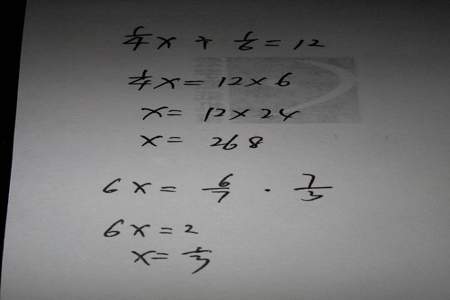 1/4 x × 1/6 = 12
1/4 x = 12 × 6
x = 12 × 24
x = 268
6x = 6/7 · 7/3
6x = 2
x = 1/3